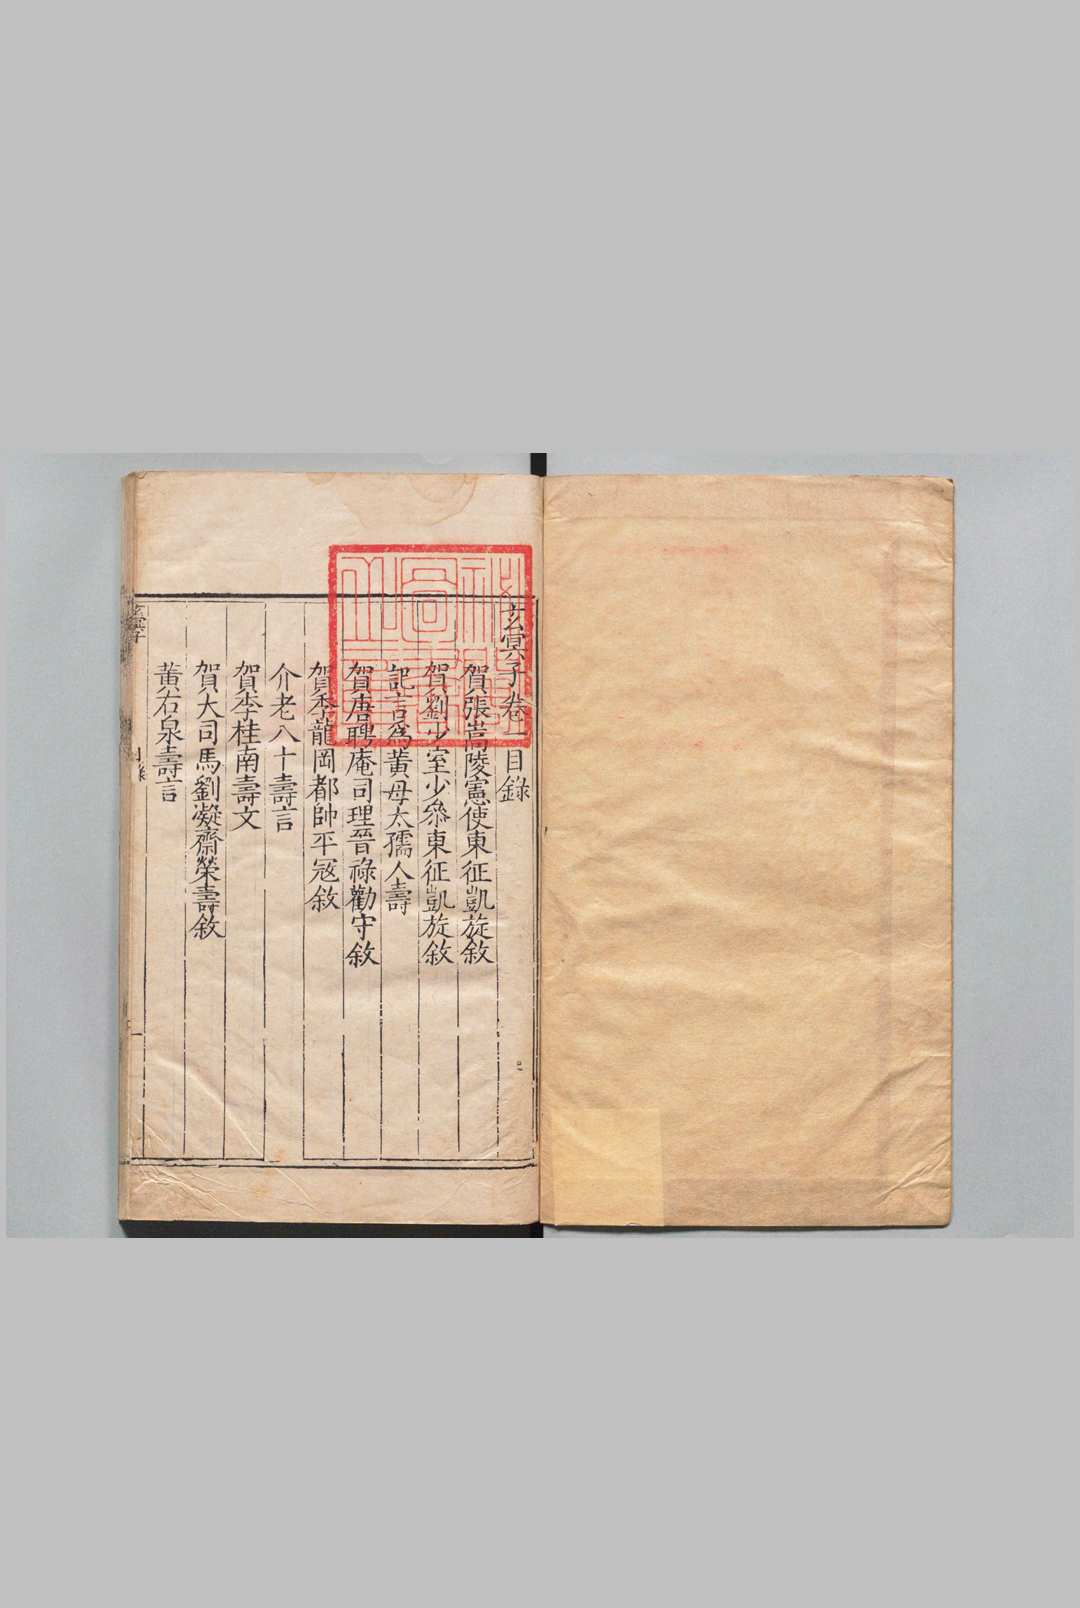 玄冥子卷一目錄
賀張嵩陵憲使東征凱旋敘
賀劉少室少叅東征凱旋敘
記言爲黃母太孺人壽
賀唐聘庵司理晉祿勸守敘
賀李龍岡都帥平寇敘
介老八十壽言
賀李桂南壽文
賀大司馬劉凝齋榮壽敘
黃右泉壽言
玄冥子
目錄
一